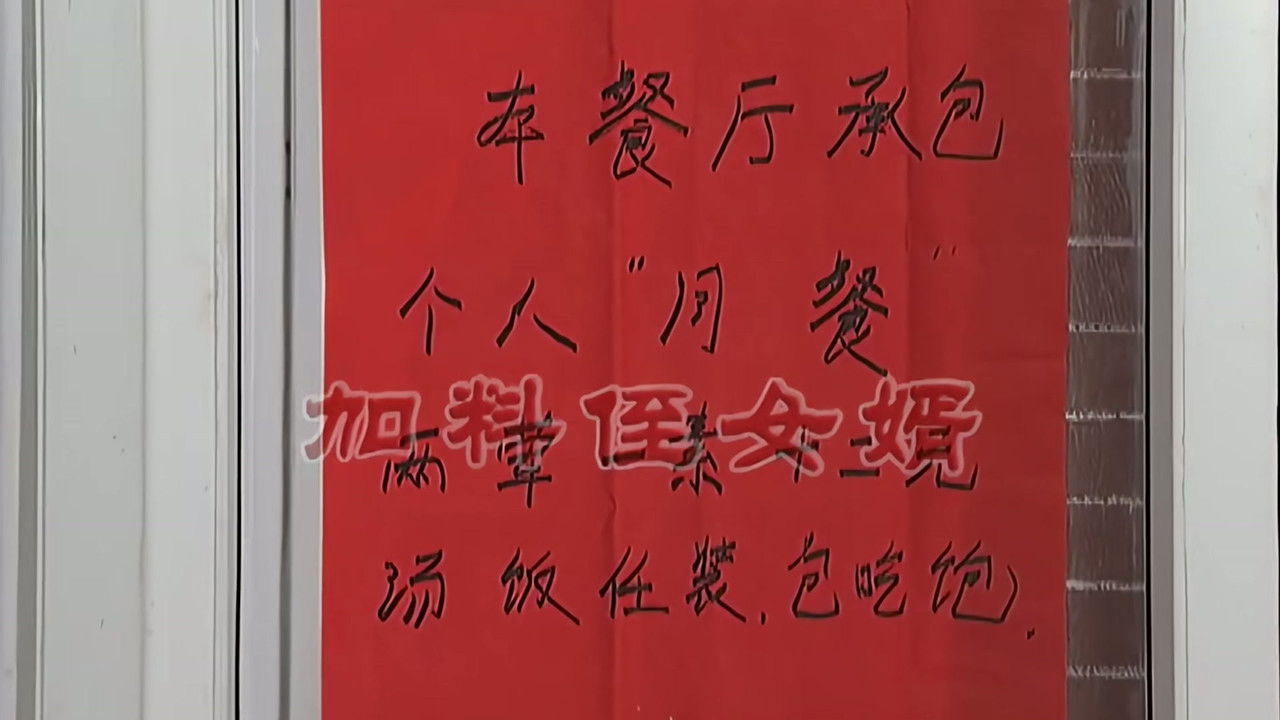 本餐厅承包
个人“月餐”
加料侄女婿
两荤一素十二元
汤饭任装，包吃饱，